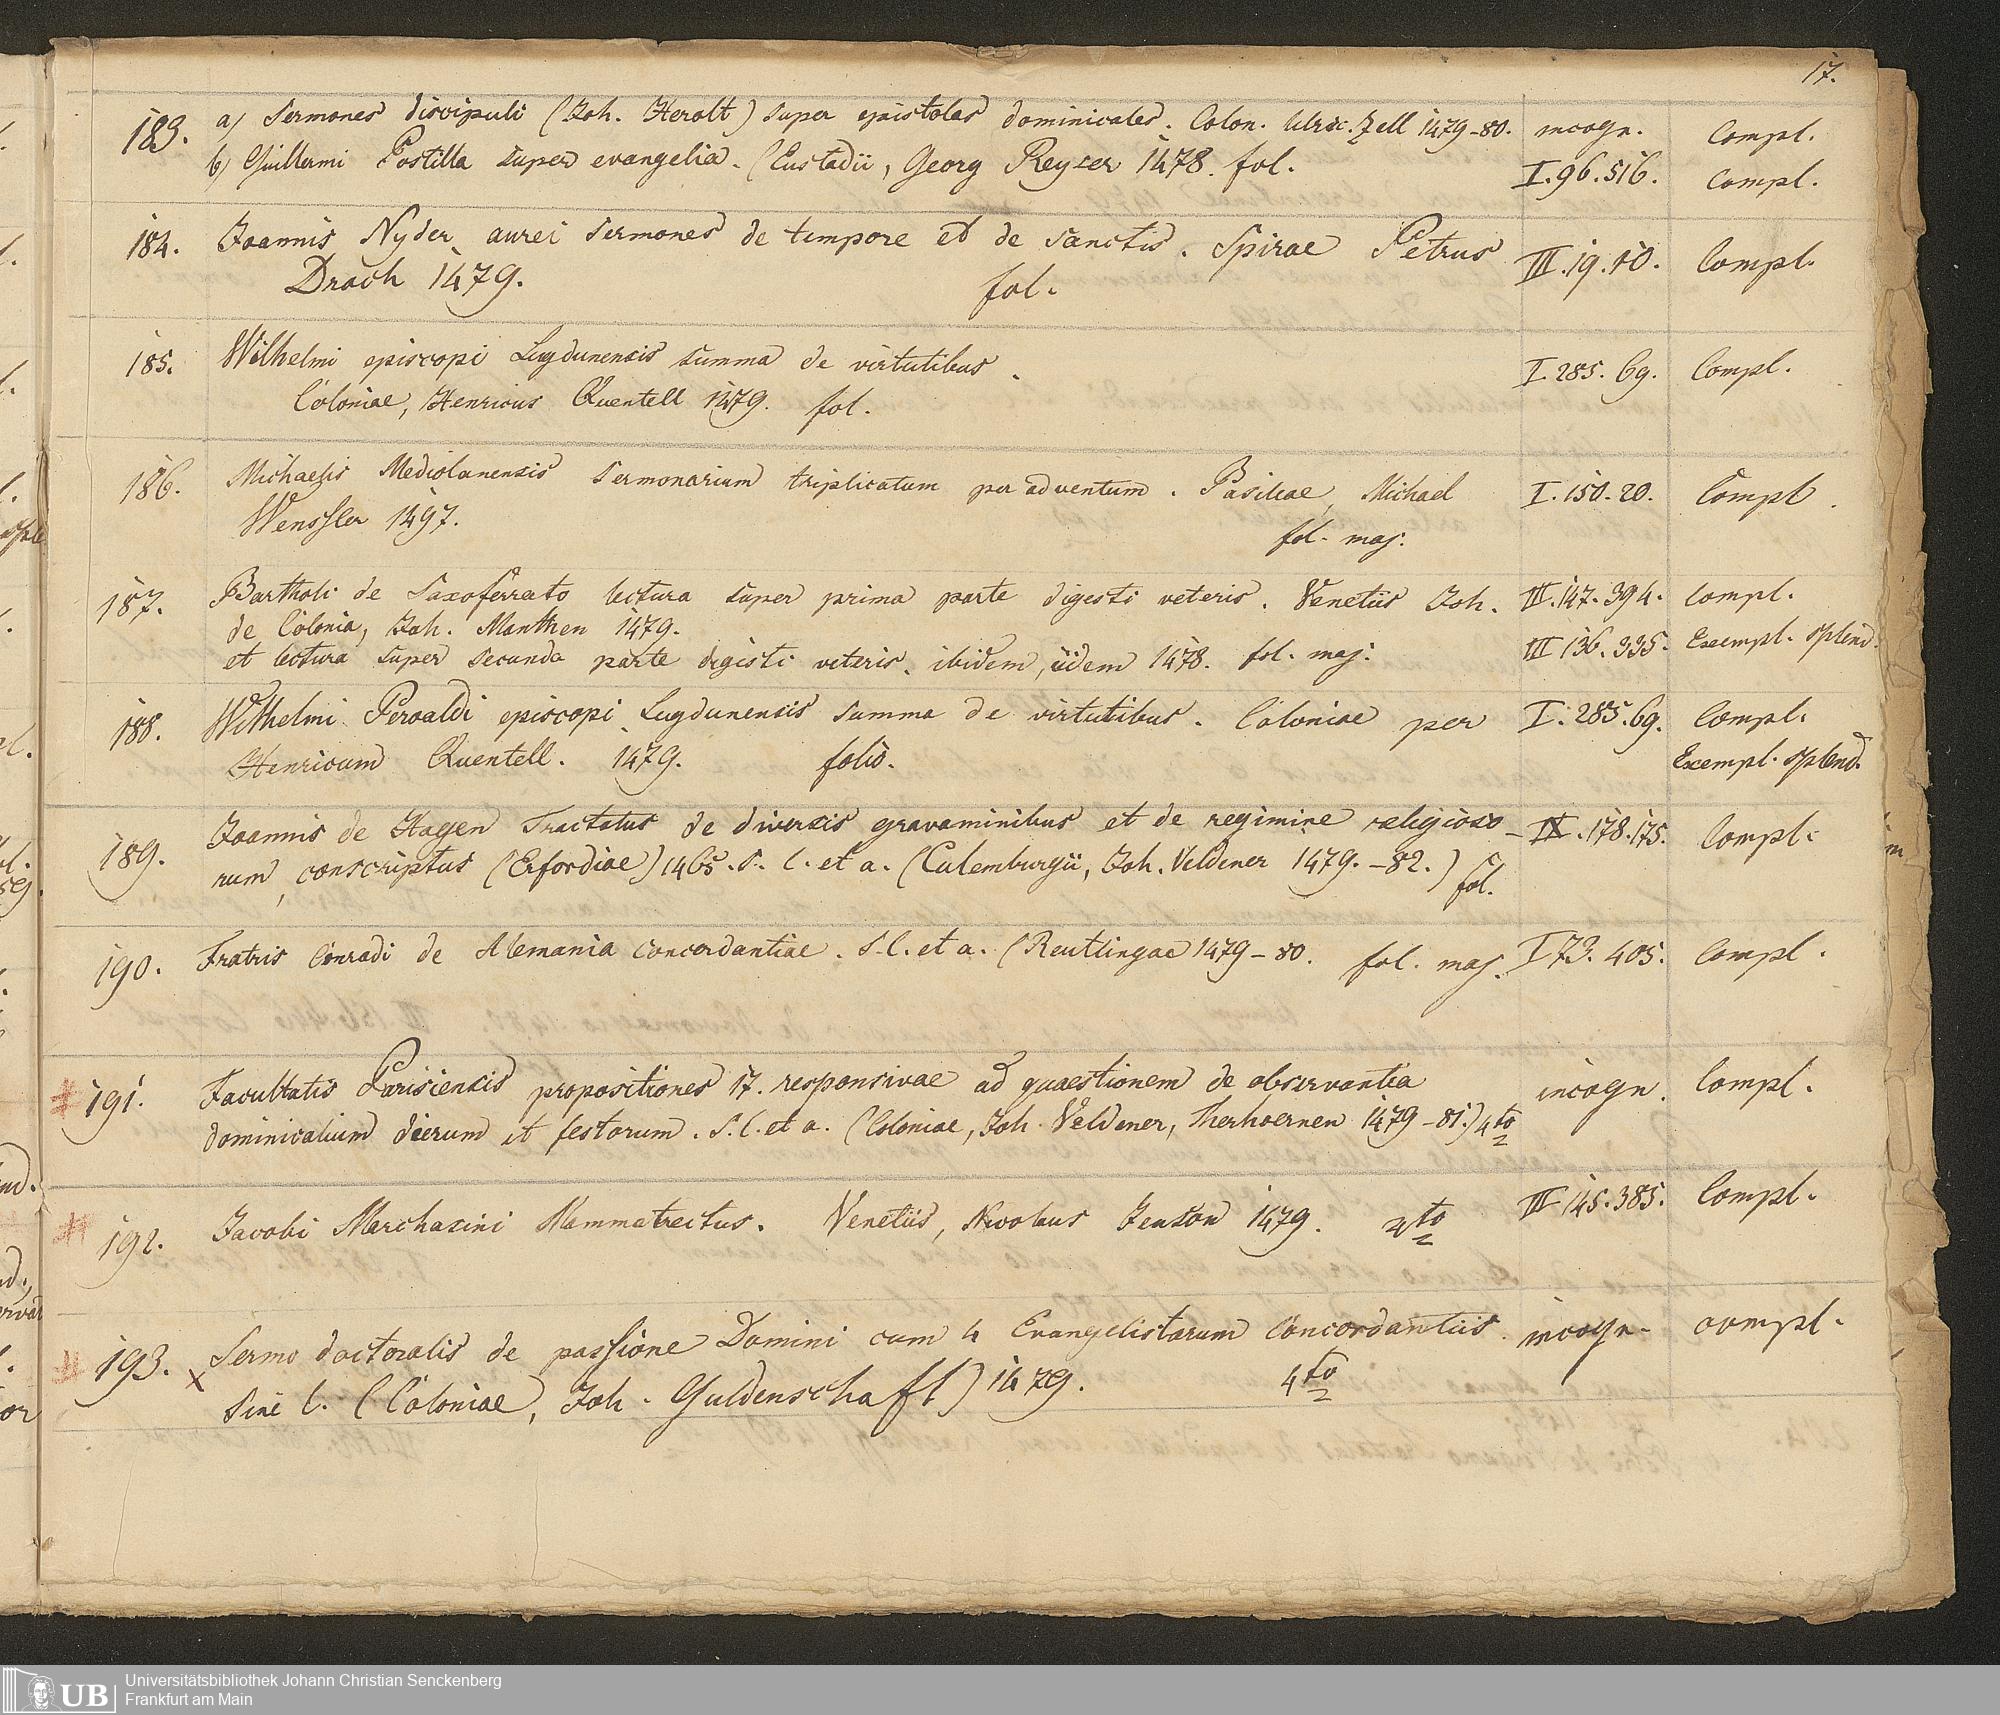 17.
183. a) Sermones discipuli (Joh. Herolt) super epistolas dominicales. Colon. Ulric. Zell 1479-80. incogn. Compl.
b) Guillermi Postilla super evangelia. (Eustadii, Georg Reyser 1478. fol. I. 96. 516. Compl.
184. Joannis Nyder aurei sermones de tempore et de sanctis. Spirae Petrus III. 19. 10. Compl.
Drach 1479. fol.
185. Wilhelmi episcopi Lugdunensis summa de virtutibus. I. 285. 69. Compl.
Coloniae, Henricus Quentell 1479. fol.
186. Michaelis Mediolanensis Sermonarium triplicatum per adventum. Basileae, Michael I. 150. 20. Compl.
Wenssler 1497. fol. maj.
187. Bartholi de Saxoferrato lectura super prima parte digesti veteris. Venetiis Joh. III. 147. 394. Compl.
de Colonia, Joh. Manthen 1479.
et lectura super secunda parte digesti veteris. ibidem, iidem 1478. fol. maj. III 136. 335. Exempl. splend.
188. Wilhelmi Peraldi episcopi Lugdunensis summa de virtutibus. Coloniae per I. 285. 69. Compl.
Henricum Quentell. 1479. folio. Exempl. splend.
189. Joannis de Hagen Tractatus de diversis gravaminibus et de regimine religioso- IX. 178. 175. Compl.
rum, conscriptus (Erfordiae) 1465. S. l. et a. (Culemburgii, Joh. Veldener 1479.-82.) fol.
190. Fratris Conradi de Alemania concordantiae. S. l. et a. (Reutlingae 1479-80. fol. maj. I 73. 405. Compl.
# 191. Facultatis Parisiensis propositiones 17. responsivae ad quaestionem de observantia incogn. Compl.
dominicalium dierum et festorum. S. l. et a. (Coloniae, Joh. Veldener, Therhoernen 1479-81.) 4to
# 192. Jacobi Marchasini Mammatrectus. Venetiis, Nicolaus Jenson 1479. 4to III 145. 385. Compl.
# 193. x Sermo doctoralis de passione Domini cum 4 Evangelistarum Concordantiis. incogn. compl.
Sine l. (Coloniae, Joh. Guldenschaft) 1479. 4to
Universitätsbibliothek Johann Christian Senckenberg
UB Frankfurt am Main